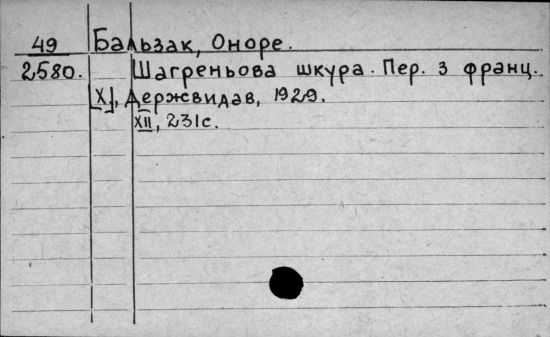 49 Бальзак, Оноре.
2580. Шагреньова шкура. Пер. з франц.
[Х], Держвидав, 1929.
XII, 231с.